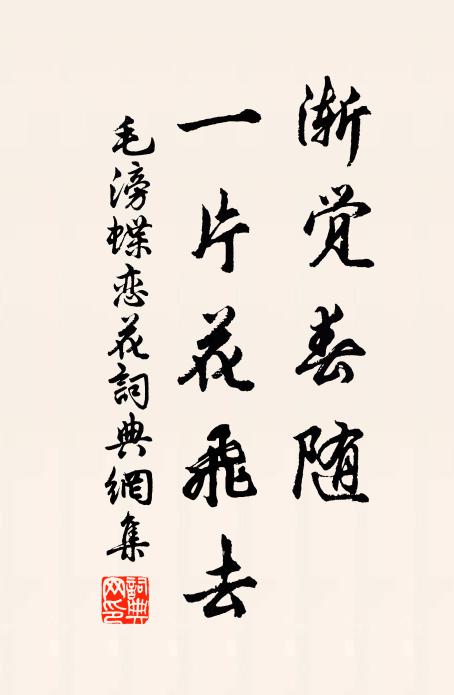 渐觉春随
一片花飛去
毛滂蝶恋花詞典網集
詞典网印